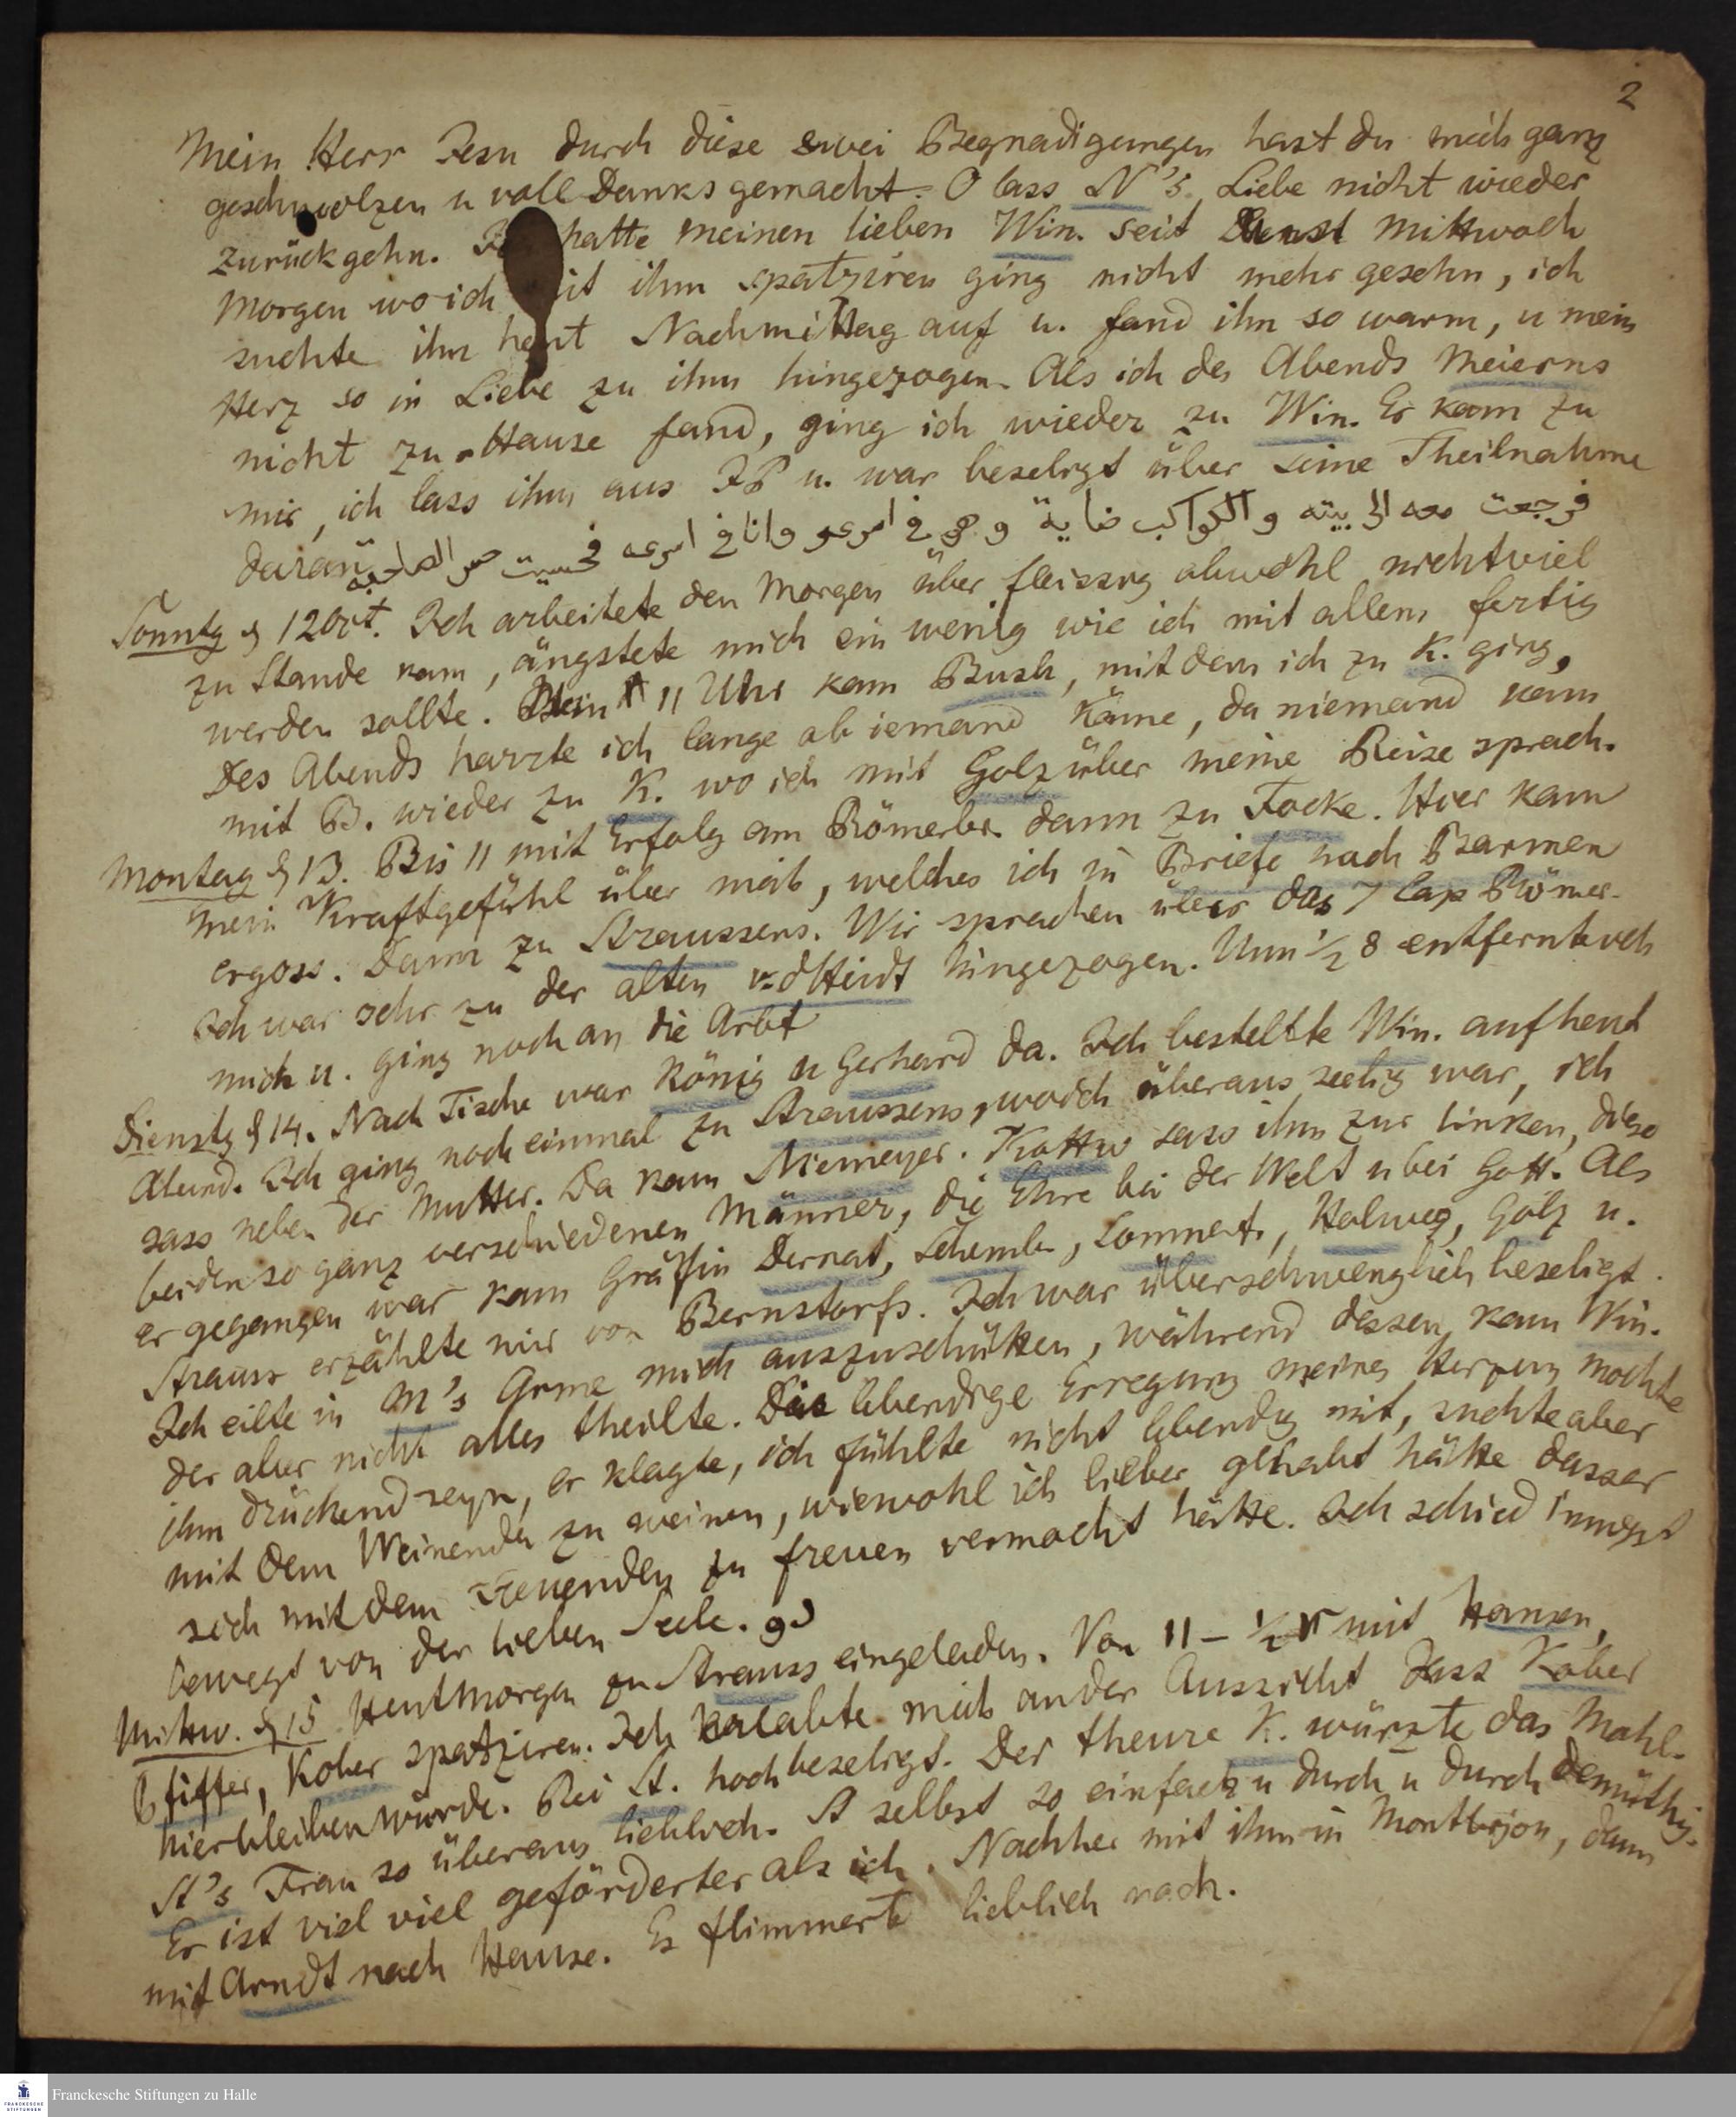 2
Mein Herr Jesu durch diese zwei Begnadigungen hast du mich ganz
geschmolzen u voll Danks gemacht. O lass N's Liebe nicht wieder
zurückgehn. hatte meinen lieben Win. seit Mittwoch
Morgen wo ich mit ihm spatziren ging nicht mehr gesehn, ich
suchte ihn heut Nachmittag auf u. fand ihn so warm, u mein
Herz so in Liebe zu ihm hingezogen. Als ich des Abends Meierns
nicht zu Hause fand, ging ich wieder zu Win. Er kam zu
mir, ich lass ihm aus JP u. war beseligt über seine Theilnahme
daran فرجعت معه الى بيته و الكواكب
Sonntg d 12 Oct. Ich arbeitete den Morgen über fleissig obwohl nicht viel
zu Stande kam, ängstete mich ein wenig wie ich mit allem fertig
werden sollte. 11 Uhr kam Bush, mit dem ich zu K. ging,
Des Abends harrte ich lange ob iemand käme, da niemand kam
mit B. wieder zu K. wo ich mit Golz über meine Reise sprach.
Montag d 13. Bis 11 mit Erfolg am Römerbr. dann zu Focke. Hier kam
mein Kraftgefühl über mich, welches ich in Briefe nach Barmen
ergoss. Dann zu Straussens. Wir sprachen über das 7 Cap Römer.
Ich war sehr zu der alten v. dHeidt hingezogen. Um ½ 8 entfernte ich
mich u. ging noch an die Arbt
Dienstg d 14. Nach Tische war König u Gerhard da. Ich bestellte Win. auf heut
Abend. Ich ging noch einmal zu Straussens, wo ich überaus seelig war, ich
sass neben der Mutter. Da kam Niemeyer. Kottw sass ihm zur linken, diese
beiden so ganz verschiedenen Männer, die Ehre bei der Welt u bei Gott. Als
er gegangen war kam Gräffin Dernat, Schemb, Sommert, Holweg, Gölz u.
Strauss erzählte mir von Bernstorfs. Ich war überschwenglich beseligt.
Ich eilte in M's Arme mich auszuschütten, während dessen kam Win.
der aber nicht alles theilte. Die lebendige Erregung meines Herzens mochte
ihm drückend seyn, er klagte, ich fühlte nicht lebendig mit, suchte aber
mit dem Weinenden zu weinen, wiewohl ich lieber gehabt hätte dass er
sich mit dem Freuenden zu freuen vermocht hätte. Ich schied innigst
bewegt von der lieben Seele.
Mittw. d 15 Heut Morgen zu Strauss eingeladen. Von 11 – ½ mit Hansen,
Pfiffer, Kober spatziren. Ich labte mich an der Aussicht dass Kober
hierbleiben würde. Bei St. hochbeseligt. Der theure K. würzte das Mahl.
St's Frau so überaus lieblich. St selbst so einfach u durch u durch demüthig.
Er ist viel viel geförderter als ich. Nachher mit ihm in Montbijou, dann
mit Arndt nach Hause. Es flimmerte lieblich nach.
Franckesche Stiftungen zu Halle